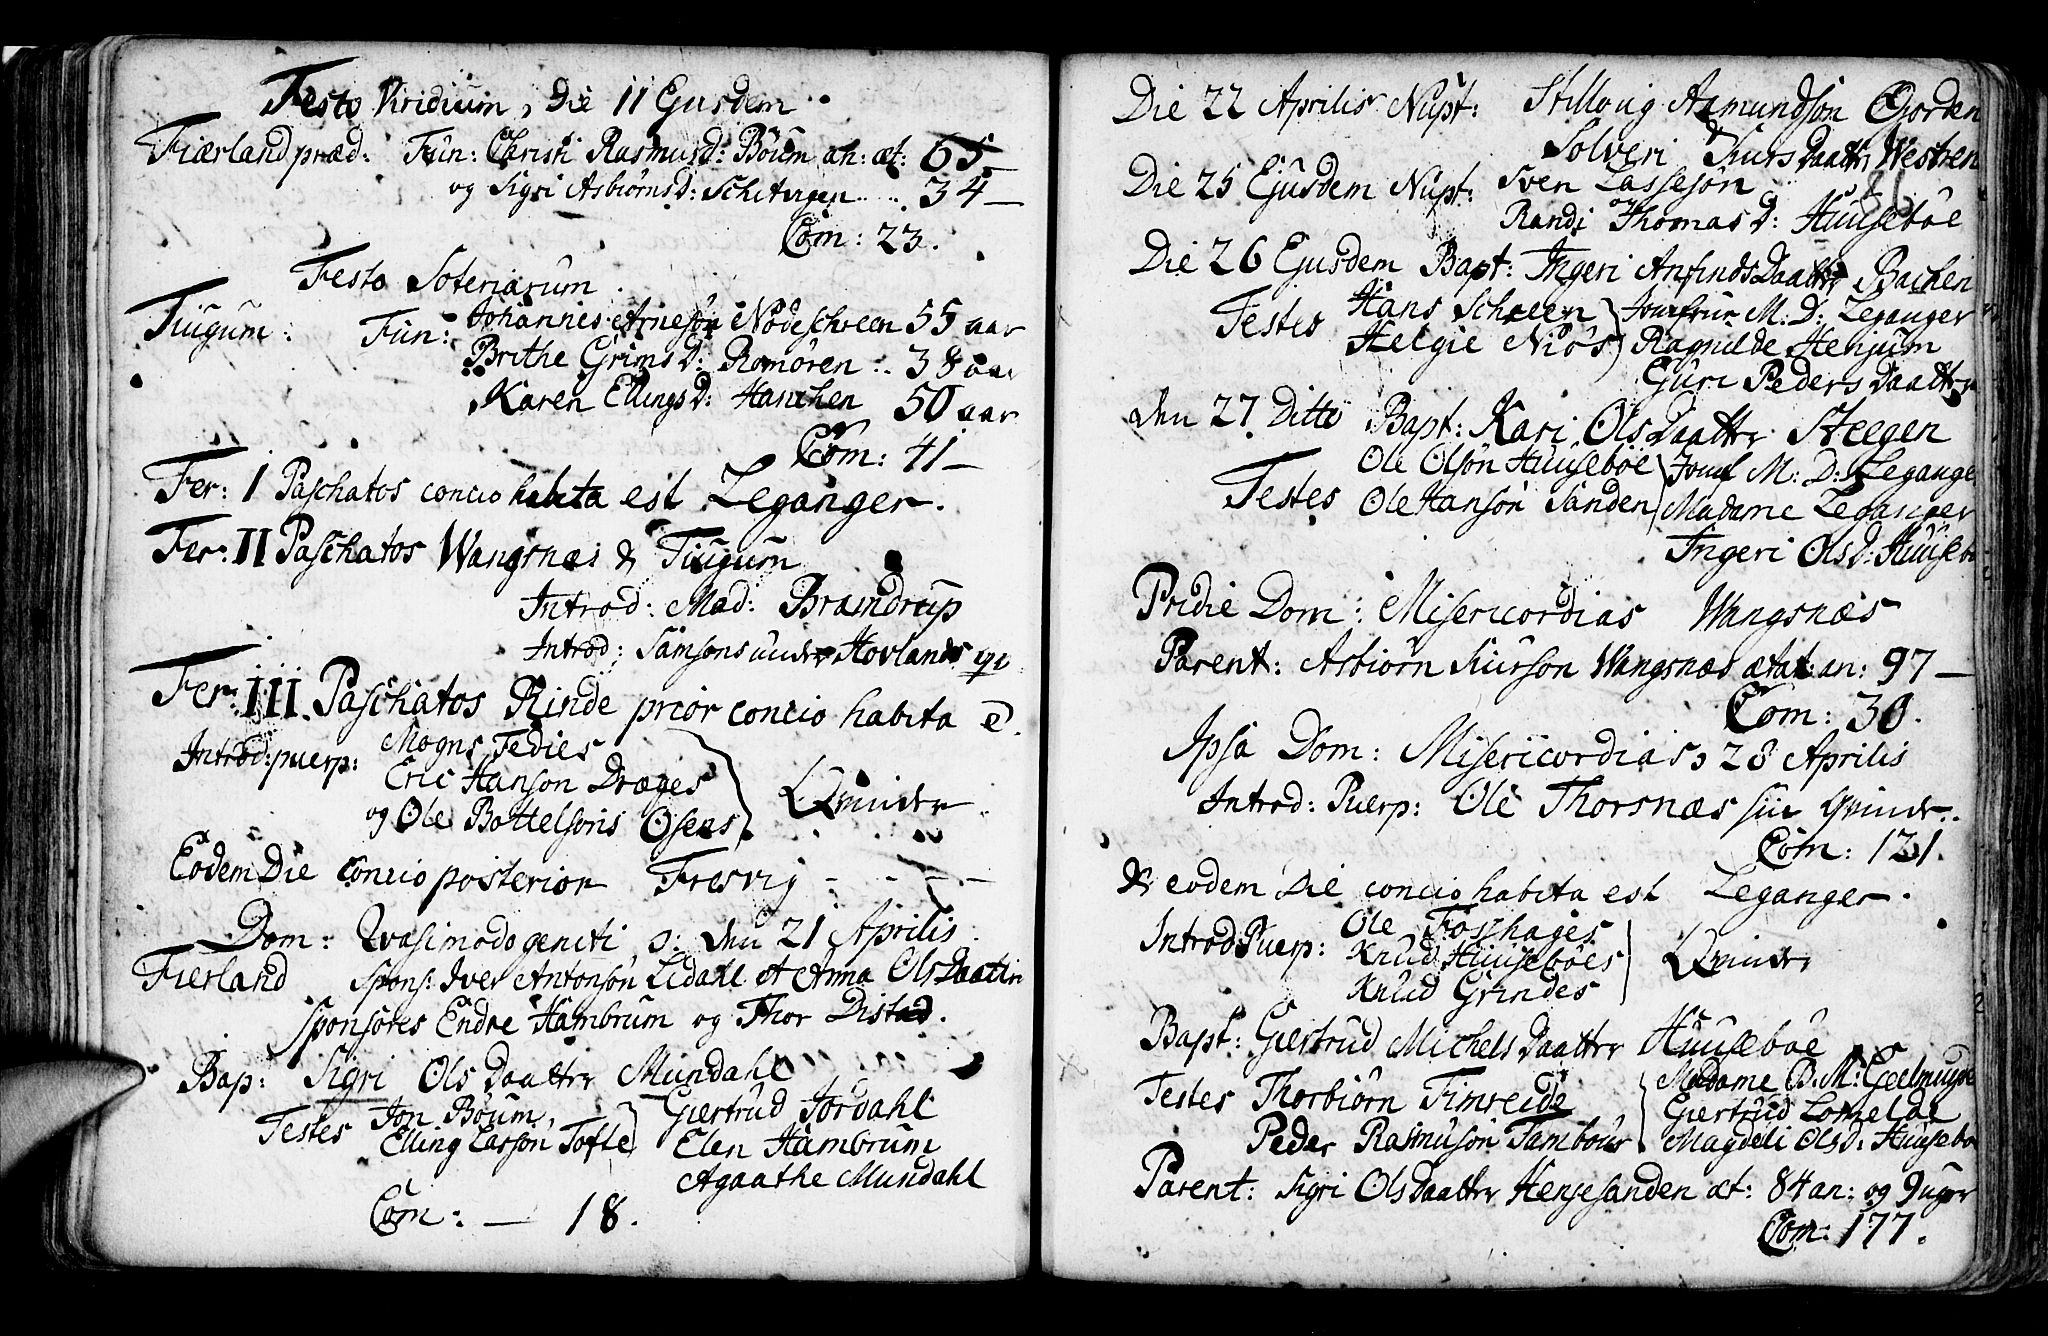 Festo Viridium, Die 11 Ejusdem
Fiærland præd: Fun: Christi Rasmusd: Böum an: æt: 65
og Sigri Asbiörnsd: 34
Com: 23.
Festo Soteriarum
Tiugum: Fun: Johannis Arnesön Nödeschreen 55 aar
Brithe Grimsd: Romören 38 aar
Karen Ellingsd: Hanchen 50 aar
Com: 41
Fer: I Paschatos concio habita est Leganger.
Fer: II Paschatos Wangsnæs & Tiugum
Introd: Mad: Bramdrup
Introd: Samsons under Hovlands
Fer: III Paschatos Rinde prior concio habita e.
Introd: puerp: Mogns Tedies
Eric Hanson Dræges
og Ole Bottelsons Osens } Qvinder
Eodem Die concio posterior Fresvig
Dom: Qvasimodogeniti o: den 21 Aprilis
Fierland Spons: Iver Antonsön Lidahl et Anna Olsdaatter
Sponsores Endre Hambrum og Thor Distad.
Bap: Sigri Olsdaatter Mundahl
Testes Jon Böum,
Elling Larson Tofte } Giertrud Jordahl
Elen Hambrum
Agaathe Mundahl
Com: — 18.
Die 22 Aprilis Nupt: Asmundsön
& Solveri Siursdaatter Westren
Die 25 Ejusdem Nupt: Sven Lassesön
og Randi Thomasd: Huuseböe
Die 26 Ejusdem Bapt: Ingeri Anfindsdaatter Bachen
Testes Hans Schreen } Jomfrue M: D: Leganger
Helgie Niös } Ragnilde Henjum
Guri Pedersdaatter
den 27 Ditto Bapt: Kari Olsdaatter Steegen
Testes Ole Olsön Huuseböe } Jomf M: D: Legange
Ole Hansön Sanden } Madame Leganger
Ingeri Olsd: Huusebö
Pridie Dom: Misericordias Wangsnæs
Parent: Asbiörn Siurson Wangsnæs ætat: an: 97 —
Com: 30.
Ipsa Dom: Misericordias 28 Aprilis
Introd: Puerp: Ole Thorsnæs sin Qvinde.
Com: 121.
& eodem Die concio habita est Leganger.
Introd Puerp: Ole Fosshages
Knud Huuseböes
Knud Grindes } Qvinder
Bapt: Giertrud Michelsdaatter Huuseböe
Testes Thorbiörn Timreide } Madame B. M: Geelmuyde
Giertrud Lomelde
Peder Rasmusön Tambour } Magdeli Olsd: Huusebö
Parent: Sigri Olsdaatter Hensesanden æt: 84 an: og 9 uger
Com: 177.